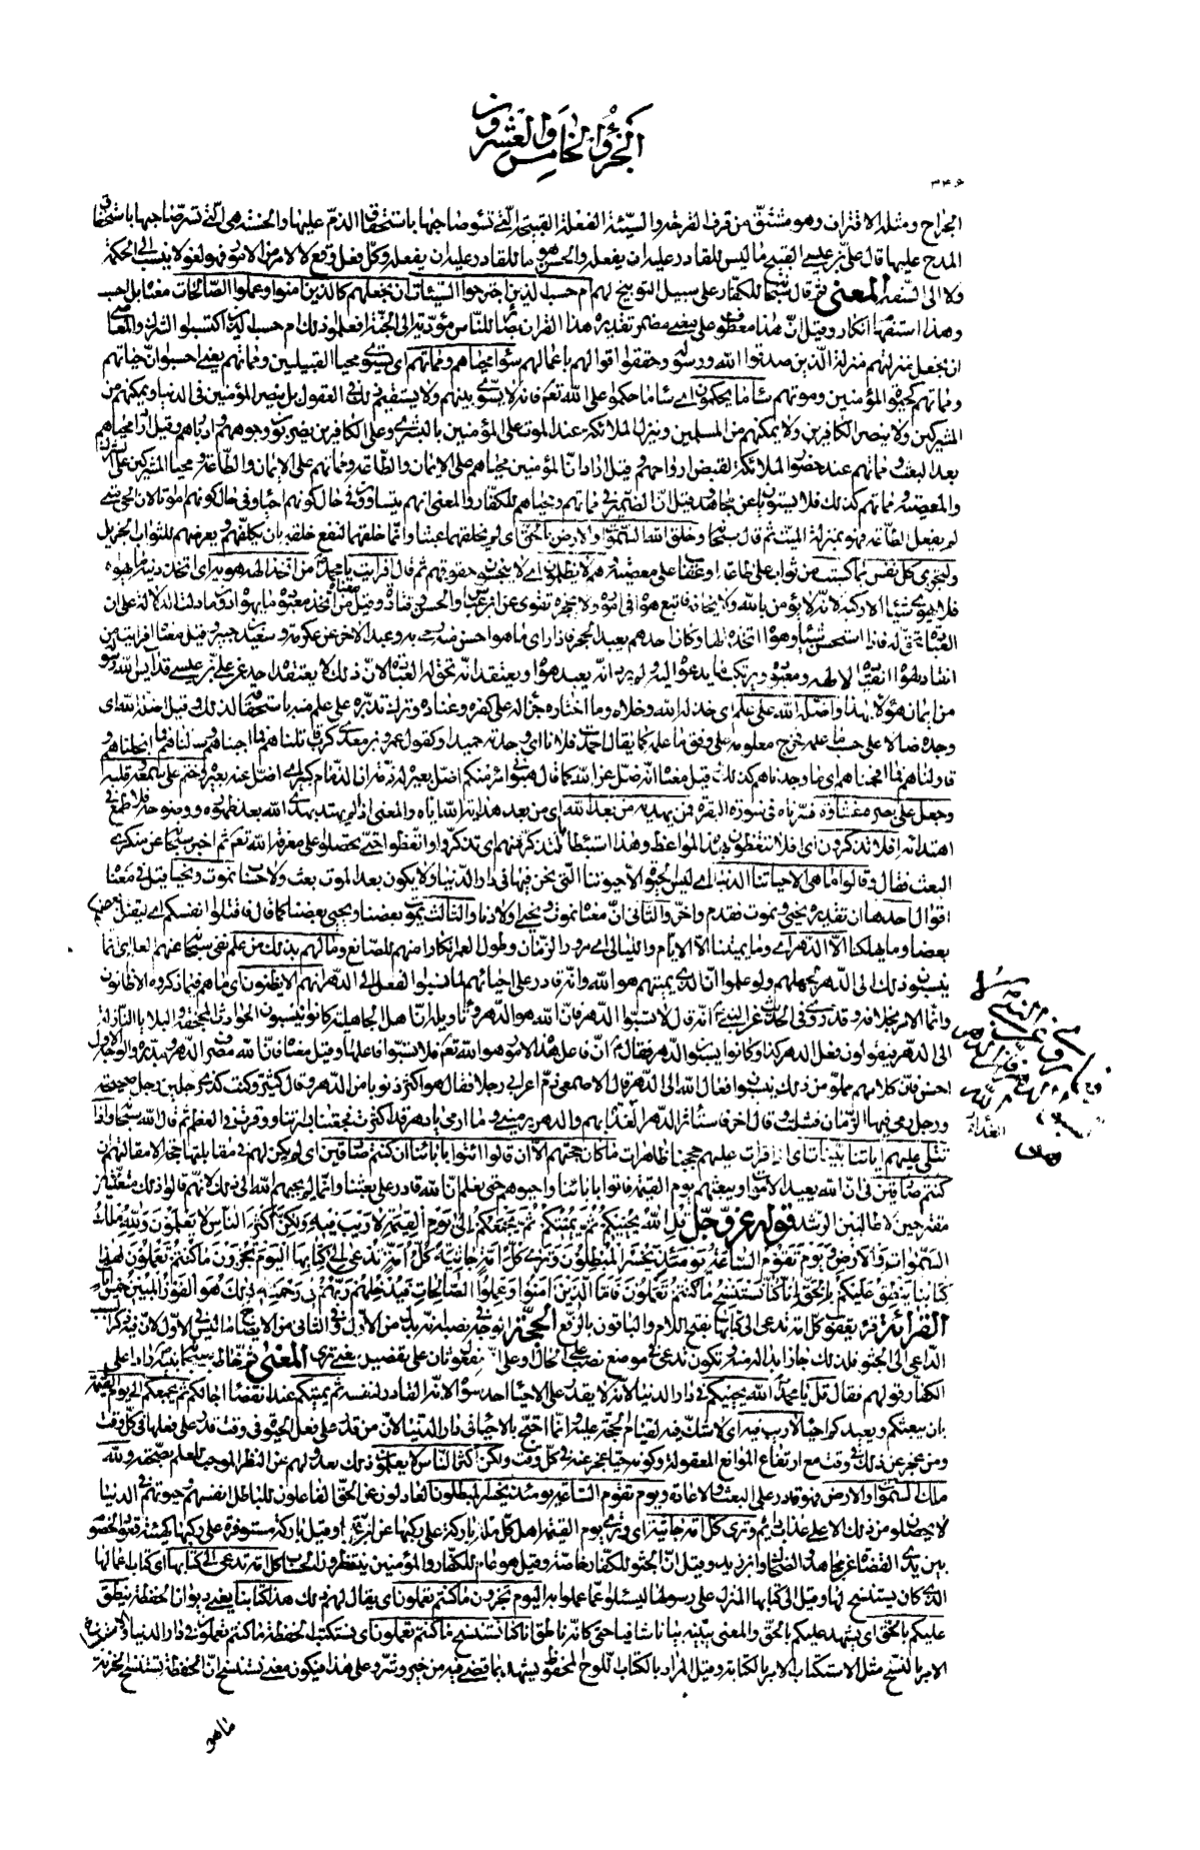 الجزؤ الخامس والعشرون
٣٤٦
الجراح ومثله الاقتراف وهو مشتق من قرف القرحة والسيّئة الفعلة القبيحة الّتي تسوء صاحبها باستحقاق الذمّ عليها والحسنة هي الّتي تسرّ صاحبها باستحقاق
المدح عليها قال عليّ بن عيسى القبيح ما ليس للقادر عليه ان يفعله والحسن هو ما للقادر عليه ان يفعله وكلّ فعل وقع لا لامر من الامور فهو لغو لا ينسب الى الحكمة
ولا الى السّفه المعنى ثمّ قال سبحانه للكفّار على سبيل التوبيخ لهم ام حسب الّذين اجترحوا السيّئات ان نجعلهم كالّذين امنوا وعملوا الصّالحات معناه بل حسب
وهذا استفهام انكار وقيل انّ هذا معطوف على معنى مضمر تقديره هذا القران بصائر للنّاس مؤدّية الى الجنّة افعلموا ذلك ام حسب الّذين اكتسبوا الشرك والمعاصي
ان نجعل منزلتهم منزلة الّذين صدقوا الله ورسوله وحقّقوا اقوالهم باعمالهم سواء محياهم ومماتهم اي يستوي محيا القبيلين ومماتهم يعني احسبوا انّ حياتهم
ومماتهم كحيوة المؤمنين وموتهم ساء ما يحكمون اي ساء ما حكموا على الله تعم فانّه لا يسوّي بينهم ولا يستقيم ذلك في العقول بل ينصر المؤمنين في الدنيا ويمكّنهم من
المشركين ولا ينصر الكافرين ولا يمكّنهم من المسلمين وينزل الملائكة عند الموت على المؤمنين بالبشرى وعلى الكافرين يضربون وجوههم وادبارهم وقيل اراد محياهم
بعد البعث ومماتهم عند حضور الملائكة لقبض ارواحهم وقيل اراد انّ المؤمنين محياهم على الايمان والطّاعة ومماتهم على الايمان والطّاعة ومحيا المشركين على الشرك
والمعصية ومماتهم كذلك فلا يستويان عن مجاهد وقيل انّ الضمير في مماتهم ومحياهم للكفّار والمعنى انهم يتساوون في حال كونهم احياء وفي حال كونهم امواتا لان الحيّ متى
لم يفعل الطّاعة فهو بمنزلة الميّت ثمّ قال سبحانه وخلق الله السّموات والارض بالحقّ اي لم يخلقهما عبثا وانّما خلقهما لنفع خلقه بان يكلّفهم ويعرضهم للثواب الجزيل
ولتجزى كلّ نفس بما كسبت من ثواب على طاعة او عقاب على معصية وهم لا يظلمون اي لا يبخسون حقوقهم ثمّ قال افرايت يا محمّد من اتّخذ الهه هويه اي اتّخذ دينه ما يهواه
فلا يهوى شيئا الا ركبه لانّه لا يؤمن بالله ولا يخافه فاتبع هواه في اموره ولا يحجزه تقوى عن ابن عبّاس والحسن وقتادة وقيل معناه من اتّخذ معبوده ما يهواه دون ما دلّت الدلالة على ان
العبادة تحقّ له فاذا استحسن شيئا وهواه اتّخذه الها وكان احدهم يعبد الحجر فاذا راى ما هو احسن منه رمى به وعبد الاخر عن عكرمة وسعيد بن جبير وقيل معناه افرايت من
انقاد لهواه انقياده لالهه ومعبوده ويرتكب ما يدعوه اليه ولم يرد انّه يعبد هواه ويعتقد انّه تحقّ له العبادة لانّ ذلك لا يعتقده احد عن عليّ بن عيسى قد ايس الله رسوله
من ايمان هؤلاء بهذا واضلّه الله على علم اي خذله الله وخلاه وما اختاره جزاء له على كفره وعناده وترك تدبّره على علم منه باستحقاقه لذلك وقيل اضلّه الله اي
وجده ضالا على حسب ما علمه فخرج معلومه على وفق ما علمه كما يقال احمدت فلانا اي وجدته حميدا وكقول عمرو بن معدي كرب قاتلناهم فما اجبناهم وسالناهم فما ابخلناهم و
قاولناهم فما افحمناهم اي ما وجدناهم كذلك وقيل معناه انّه ضلّ عن الله كما قال هبوني امرءا منكم اضلّ بعيره له ذمّة ان الذّمام كبير اي اضلّ عنه بعيره وختم على سمعه وقلبه
وجعل على بصره غشاوة فسّرناه في سورة البقرة فمن يهديه من بعد الله اي من بعد هداية الله ايّاه والمعنى اذا لم يهتد بهدى الله بعد ظهوره ووضوحه فلا طمع في
اهتدائه افلا تذكرون اي افلا تتعظون بهذه المواعظ وهذا استبطاء للتذكر منهم اي تذكروا واتّعظوا حتّى تحصلوا على معرفة الله تعم ثمّ اخبر سبحانه عن منكري
البعث فقال وقالوا ما هي الا حياتنا الدنيا اي ليس الحيوة الا حيوتنا الّتي نحن فيها في دار الدّنيا ولا يكون بعد الموت بعث ولا حساب نموت ونحيا وقيل في معناه
اقوال احدها ان تقديره نحيى ونموت فقدم واخّر والثاني انّ معناه نموت ونحيي اولادنا والثالث يموت بعضنا ويحيي بعضنا كما قال فاقتلوا انفسكم اي ليقتل بعضكم
بعضا وما يهلكنا الا الدّهر اي وما يميتنا الا الايّام واللّيالي اي مرور الزمان وطول العمر انكارا منهم للصانع وما لهم بذلك من علم نفى سبحانه عنهم العلم اي انّما
ينسبون ذلك الى الدّهر لجهلهم ولو علموا انّ الذي يميتهم هو الله وانّه قادر على احيائهم لما نسبوا الفعل الى الدّهر ان هم الا يظنّون اي ما هم فيما ذكروه الا ظانّون
وانّما الامر بخلافه وقد روي في الحديث عن النبيّ انّه قال لا تسبّوا الدّهر فانّ الله هو الدّهر وتاويله انّ اهل الجاهلية كانوا ينسبون الحوادث المجحفة والبلايا النّازلة
الى الدّهر فيقولون فعل الدهر كذا وكانوا يسبّون الدّهر فقال انّ فاعل هذه الامور هو الله تعم فلا تسبّوا فاعلها وقيل معناه فانّ الله مصرف الدّهر ومدبّره والوجه الاول
احسن فانّ كلامهم مملوّ من ذلك ينسبون افعال الله الى الدّهر قال الاصمعي ذمّ اعرابي رجلا فقال هو اكثر ذنوبا من الدّهر وقال كثيّر وكنت كذي رجلين رجل صحيحة
ورجل رمى فيها الزّمان فشلّت وقال اخر فاستاثر الدّهر الغداة بهم والدهر يرميني وما ارمي يا دهر قد اكثرت فجعتنا بسراتنا ووقرت في العظم ثمّ قال الله سبحانه واذا
تتلى عليهم اياتنا بيّنات اي اذا قرات عليهم حججنا ظاهرات ما كان حجّتهم الا ان قالوا ائتوا باباءنا ان كنتم صادقين اي لم يكن لهم في مقابلتها حجة الا مقالتهم ان
كنتم صادقين في انّ الله يعيد الاموات ويبعثهم يوم القيمة فاتوا بابائنا واحيوهم حتى نعلم انّ الله قادر على بعثنا وانّما لم يجبهم الله الى ذلك لانّهم قالوا ذلك متعنّتين
مقترحين لا طالبين الرشد قوله عزّ وجلّ قُلِ اللهُ يُحْيِيكُمْ ثُمَّ يُمِيتُكُمْ ثُمَّ يَجْمَعُكُمْ إِلى يَوْمِ الْقِيمَةِ لا رَيْبَ فِيهِ وَلكِنَّ أَكْثَرَ النّاسِ لا يَعْلَمُونَ وَلِلّهِ مُلْكُ
السَّمواتِ وَالْأَرْضِ وَيَوْمَ تَقُومُ السّاعَةُ يَوْمَئِذٍ يَخْسَرُ الْمُبْطِلُونَ وَتَرى كُلَّ أُمَّةٍ جاثِيَةً كُلُّ أُمَّةٍ تُدْعى إِلى كِتابِهَا الْيَوْمَ تُجْزَوْنَ ما كُنْتُمْ تَعْمَلُونَ هذا
كِتابُنا يَنْطِقُ عَلَيْكُمْ بِالْحَقِّ إِنّا كُنّا نَسْتَنْسِخُ ما كُنْتُمْ تَعْمَلُونَ فَأَمَّا الَّذِينَ امَنُوا وَعَمِلُوا الصّالِحاتِ فَيُدْخِلُهُمْ رَبُّهُمْ فِي رَحْمَتِهِ ذلِكَ هُوَ الْفَوْزُ الْمُبِينُ خمس ايات
القرائة قرء يعقوب كلّ امّة تدعى الى كتابها بفتح اللام والباقون بالرّفع الحجّة الوجه في نصبه انّه بدل من الاوّل وفي الثاني من الايضاح ما ليس في الاوّل لانّ فيه ذكر السبب
الدّاعي الى الجثوّ فلذلك جاز ابداله منه وتكون تدعى في موضع نصب على الحال وعلى انّه مفعول ثان على تفصيل معنى ترى المعنى ثمّ خاطب سبحانه نبيّه ردّا على
الكفار قولهم فقال قل يا محمّد الله يحييكم في دار الدنيا لانّه لا يقدر على الاحياء احد سواه لانّه القادر لنفسه ثمّ يميتكم عند انقضاء اجالكم ثمّ يجمعكم الى يوم القيمة
بان يبعثكم ويعيدكم احياء لا ريب فيه اي لا شكّ فيه لقيام الحجّة عليه وانّما احتجّ بالاحياء في دار الدنيا لانّ من قدر على فعل الحيوة في وقت قدر على فعلها في كلّ وقت
ومن عجز عن ذلك في وقت مع ارتفاع الموانع المعقولة وكونه حيّا عجز عنه في كلّ وقت ولكن اكثر الناس لا يعلمون ذلك بعدولهم عن النظر الموجب للعلم بصحّته ولله
ملك السّموات والارض وهو قادر على البعث والاعادة ويوم تقوم السّاعة يومئذ يخسر المبطلون العادلون عن الحقّ الفاعلون للباطل انفسهم وحيوتهم في الدنيا
لا يحصلون من ذلك الا على عذاب دائم وترى كل امّة جاثية اي وترى يوم القيمة اهل كلّ ملّة باركة على ركبها عن ابن عبّاس وقيل باركة مستوفزة على ركبها كهيئة قعود الخصوم
بين يدي القضاة عن مجاهد والضحّاك وابن زيد وقيل انّ الجثو للكفّار خاصّة وقيل هو عام للكفّار والمؤمنين ينتظرون الحساب كلّ امّة تدعى الى كتابها اي كتاب اعمالها
الّذي كان يستنسخ لها وقيل الى كتابها المنزل على رسولها ليسئلوا عمّا عملوا به اليوم تجزون ما كنتم تعملون اي يقال لهم ذلك هذا كتابنا يعني ديوان الحفظة ينطق
عليكم بالحقّ اي يشهد عليكم بالحقّ والمعنى يبيّنه بيانا شافيا حتى كانّه ناطق انّا كنّا نستنسخ ما كنتم تعملون اي نستكتب الحفظة ما كنتم تعملون في دار الدنيا والاستنساخ
الامر بالنسخ مثل الاستكتاب الامر بالكتابة وقيل المراد بالكتاب اللّوح المحفوظ يشهد بما قضي فيه من خير وشرّ وعلى هذا فيكون معنى نستنسخ انّ الحفظة تستنسخ الخزنة
ما هو